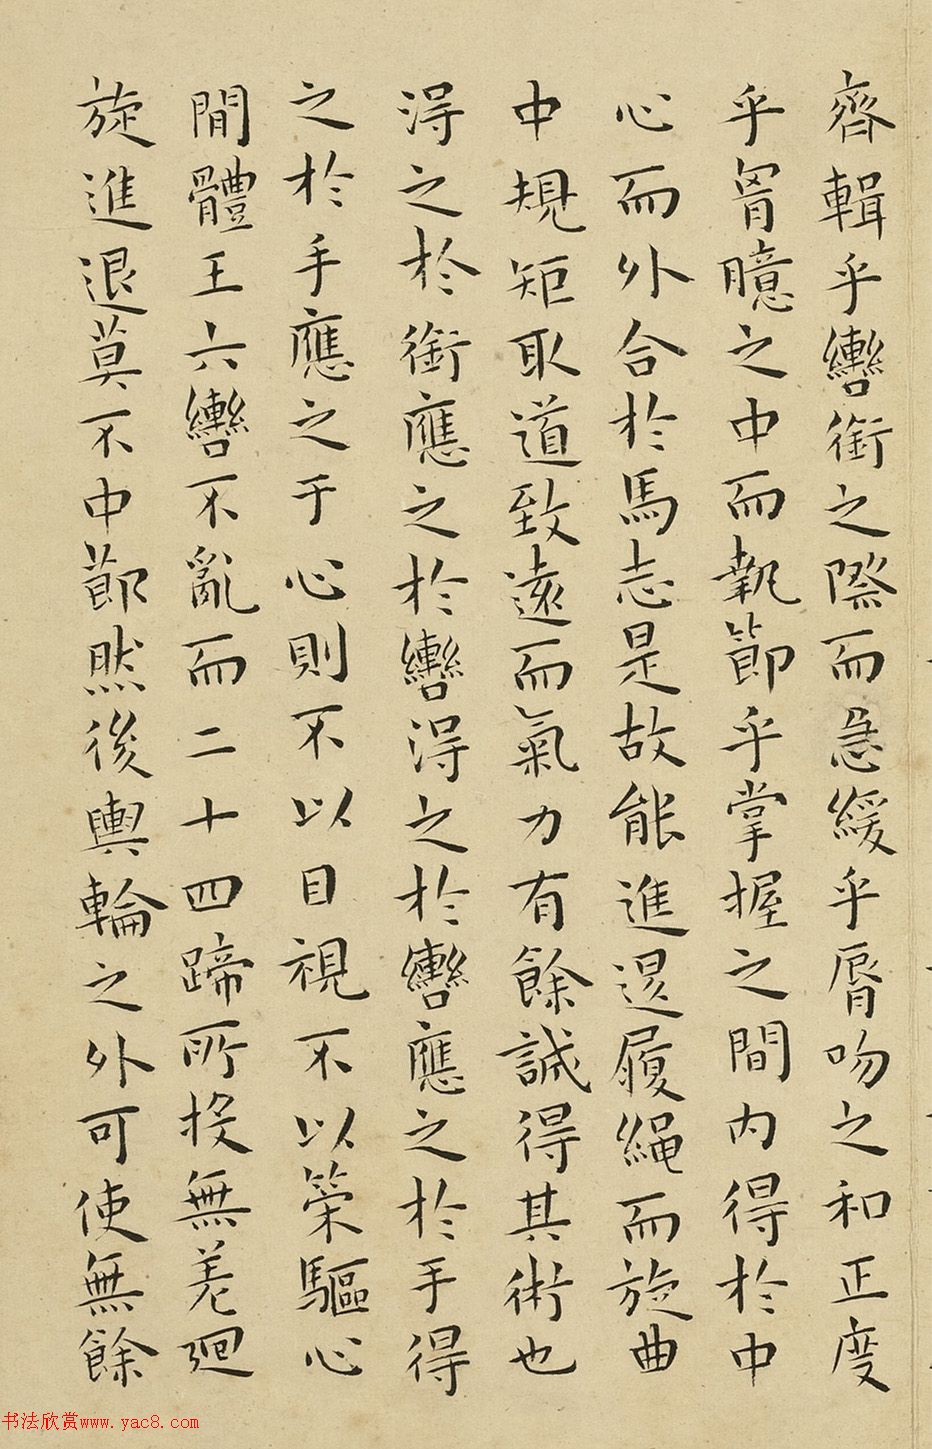 齊輯乎轡銜之際而急緩乎脣吻之和正度
乎胷臆之中而執節乎掌握之間內得於中
心而外合於馬志是故能進退履繩而旋曲
中規矩取道致遠而氣力有餘誠得其術也
得之於銜應之於轡得之於轡應之於手得
之於手應之于心則不以目視不以策驅心
間體王六轡不亂而二十四蹄所投無差迴
旋進退莫不中節然後輿輪之外可使無餘
书法欣赏www.yac8.com